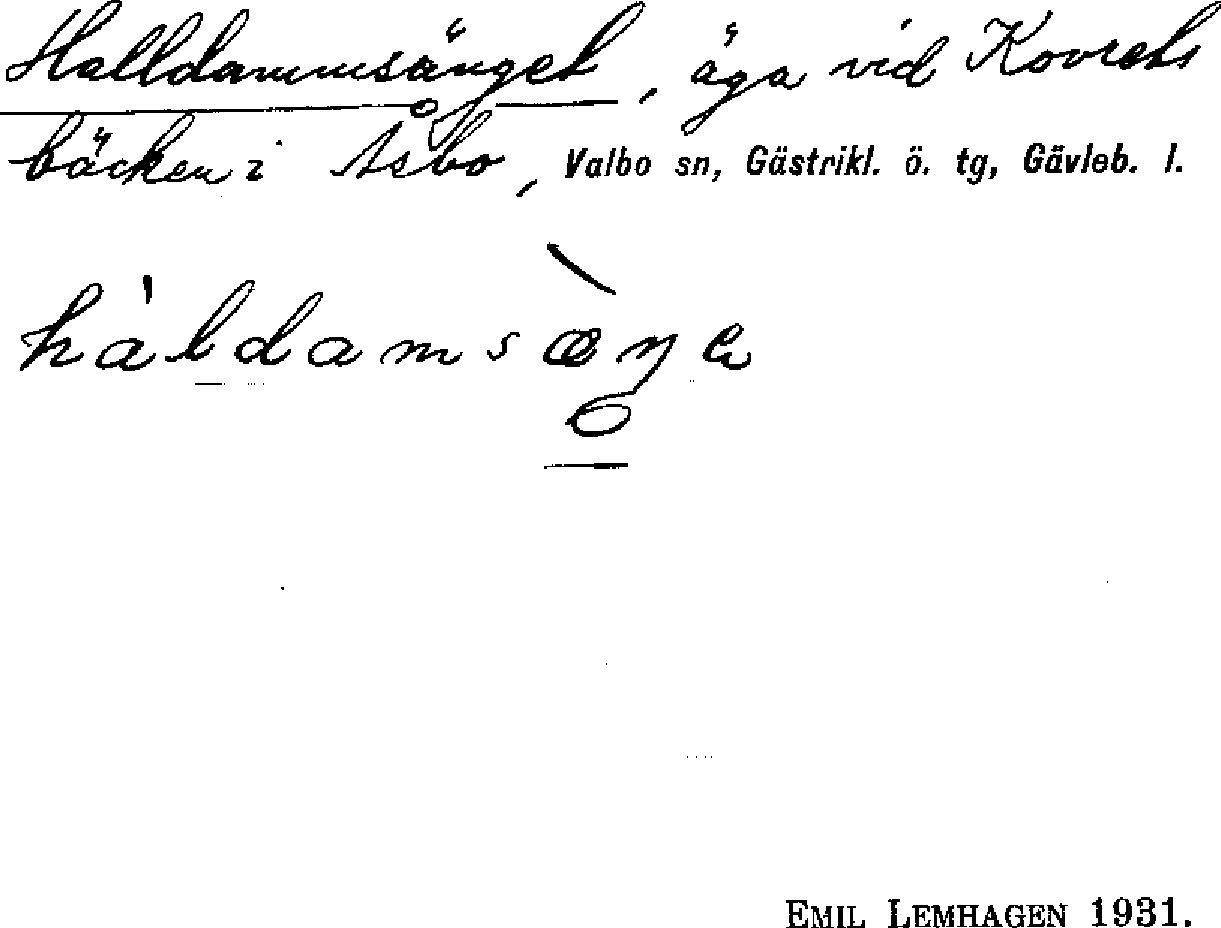 Halldammsänget, äga vid Kovrets
bäcken i Åsbo, Valbo sn, Gästrikl. ö. tg, Gävleb. l.
háldamsæ̀ŋe
EMIL LEMHAGEN 1931.